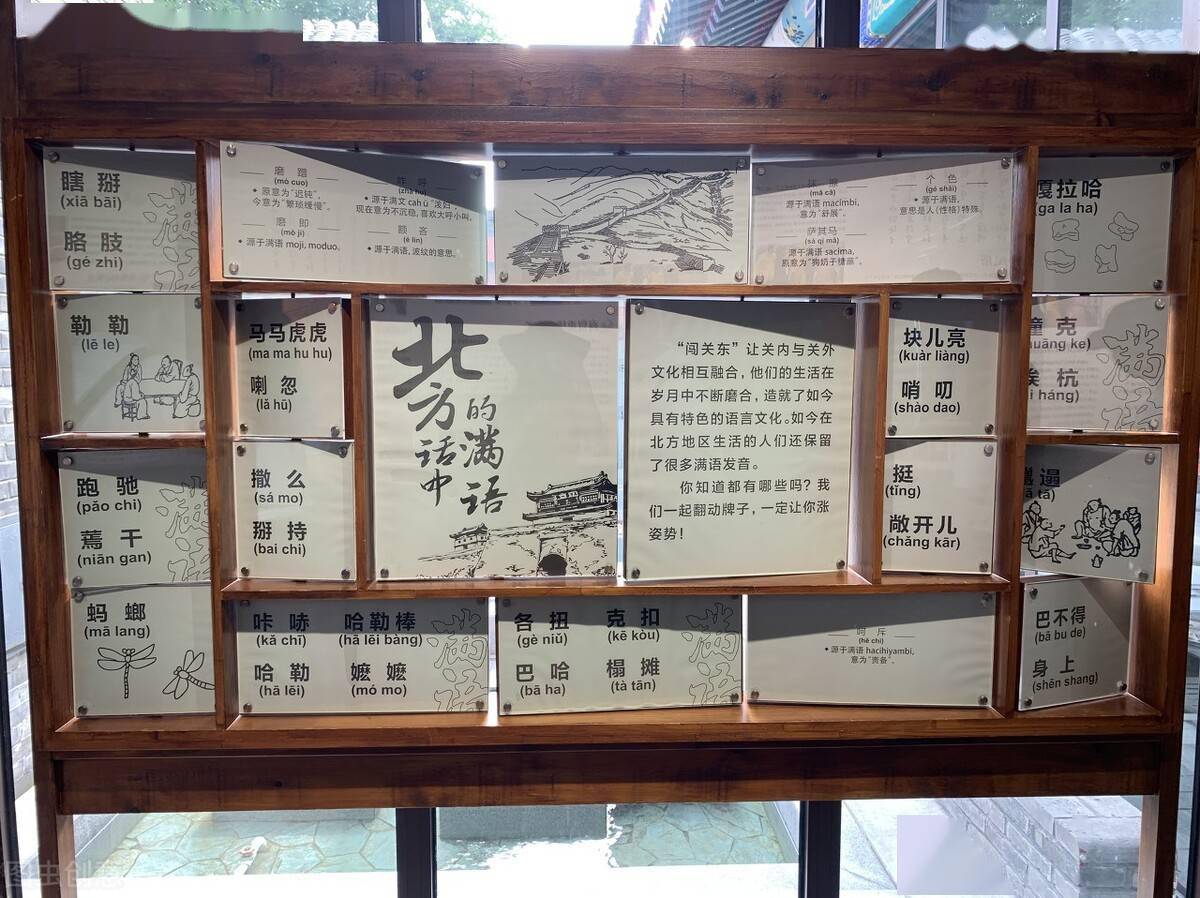 瞎掰
(xiā bāi)
胳肢
(gé zhi)
磨蹭
(mó cuo)
原意为“迟钝”，
今意为“繁琐缓慢”。
磨即
(mò ji)
源于满语 moji, moduo。
(zhà hu)
源于满文 cahū “泼妇”，
现在意为不沉稳，喜欢大呼小叫。
额吝
(é lìn)
源于满语，波纹的意思。
(mā cā)
源于满语 macimbi，
意为“舒展”。
萨其马
(sà qí mǎ)
源于满语 sacima，
原意为“狗奶子糖蘸”。
个色
(gé shǎi)
源于满语，
意思是人（性格）特殊。
嘎拉哈
(ga la ha)
勒勒
(lē le)
马马虎虎
(ma ma hu hu)
喇忽
(lǎ hū)
北方话中
的满语
“闯关东”让关内与关外
文化相互融合，他们的生活在
岁月中不断磨合，造就了如今
具有特色的语言文化。如今在
北方地区生活的人们还保留
了很多满语发音。
你知道都有哪些吗？我
们一起翻动牌子，一定让你涨
姿势！
块儿亮
(kuàr liàng)
哨叨
(shào dao)
克
uāng ke)
杭
i háng)
跑驰
(pǎo chi)
蔫干
(niān gan)
撒么
(sá mo)
掰持
(bai chi)
挺
(tǐng)
敞开儿
(chǎng kār)
遢
ā tā)
蚂螂
(mā lang)
咔哧
(kǎ chī)
哈勒棒
(hā lēi bàng)
哈勒
(hā lēi)
嬷嬷
(mó mo)
各扭
(gè niǔ)
克扣
(kē kòu)
巴哈
(bā ha)
榻摊
(tà tān)
呵斥
(hē chì)
源于满语 hacihiyambi，
意为“责备”。
巴不得
(bā bu de)
身上
(shēn shang)
满语
满语
满语
满语
满语